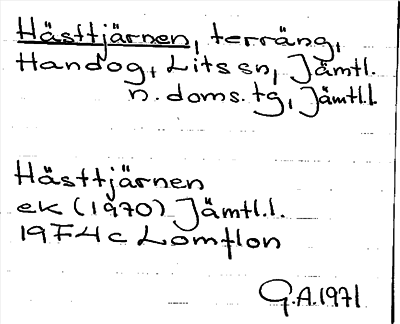 Hästtjärnen, terräng,
Handog, Lits sn, Jämtl.
n. doms. tg, Jämtl.l.
Hästtjärnen
ek (1970) Jämtl.l.
19F4c Lomflon
G.A.1971